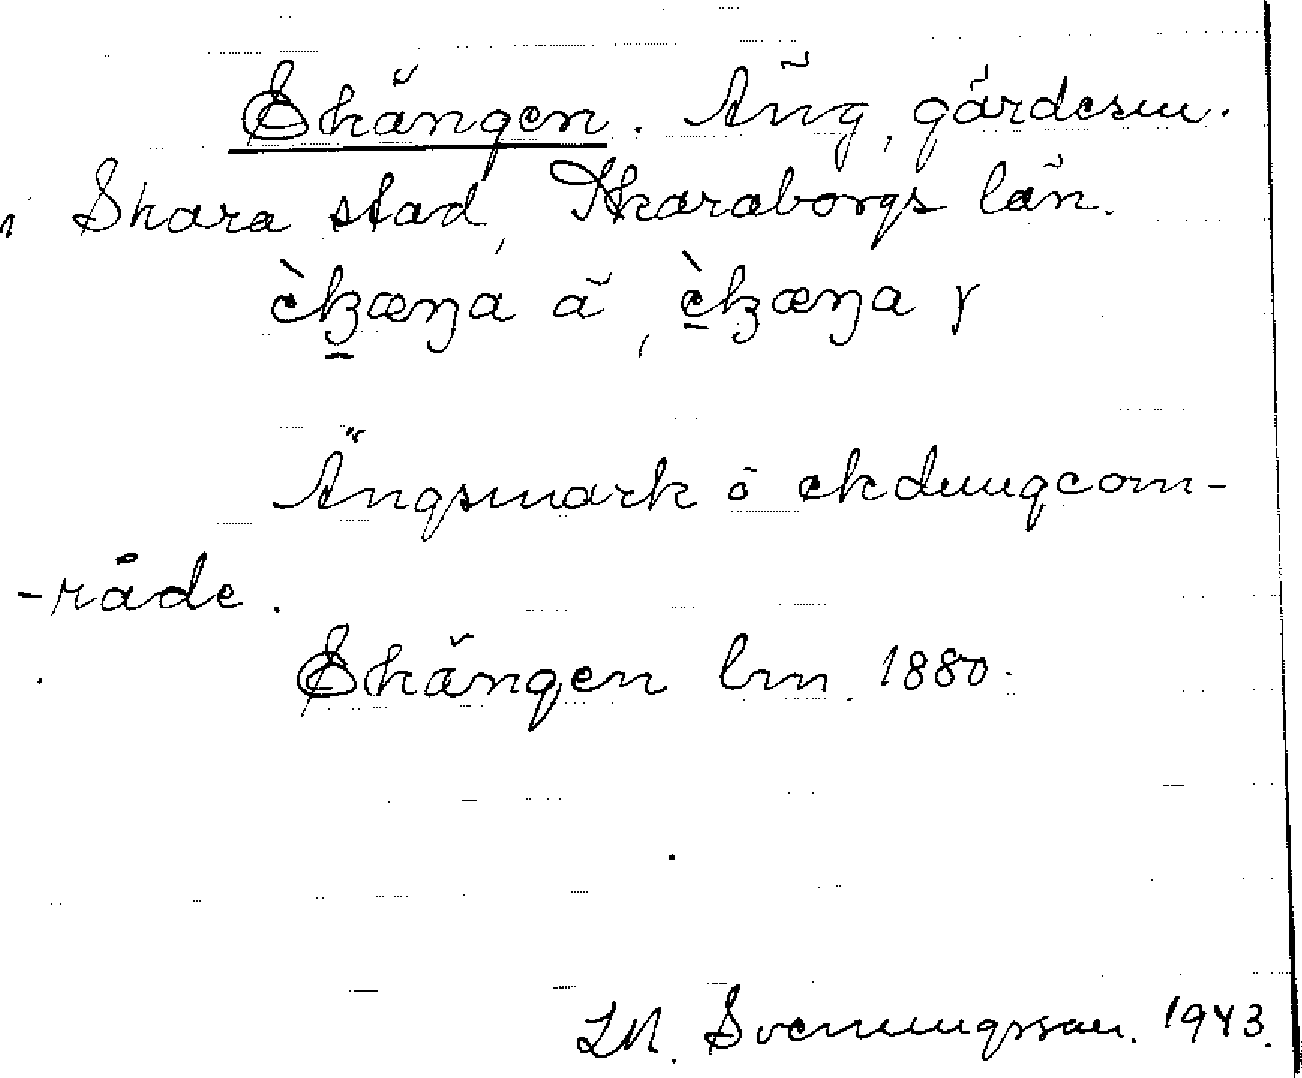 Ekängen. Äng, gärdesm.
i Skara stad, Skaraborgs län.
èkæŋa ä, èkæŋa γ
Ängsmark o ekdungeom-
-råde.
Ekängen lm. 1880.
Svenningsson. 1943.